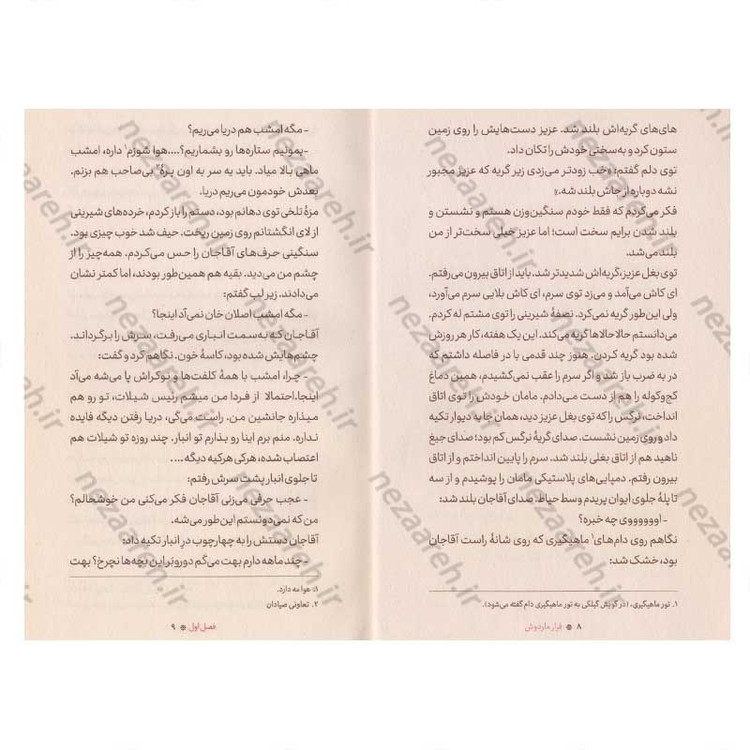 های‌های گریه‌اش بلند شد. عزیز دست‌هایش را روی زمین
ستون کرد و به‌سختی خودش را تکان داد.
توی دلم گفتم: «خب زودتر می‌زدی زیر گریه که عزیز مجبور
نشه دوباره از جاش بلند شه.»
فکر می‌کردم که فقط خودم سنگین‌وزن هستم و نشستن و
بلند شدن برایم سخت است؛ اما عزیز خیلی سخت‌تر از من
بلند می‌شد.
توی بغل عزیز، گریه‌اش شدیدتر شد. باید از اتاق بیرون می‌رفتم.
ای کاش می‌آمد و می‌زد توی سرم، ای کاش بلایی سرم می‌آورد،
ولی این‌طور گریه نمی‌کرد. نصفهٔ شیرینی را توی مشتم له کردم.
می‌دانستم حالاحالاها گریه می‌کند. این یک هفته، کار هر روزش
شده بود گریه کردن. هنوز چند قدمی با در فاصله داشتم که
در به ضرب باز شد و اگر سرم را عقب نمی‌کشیدم، همین دماغ
کج‌وکوله را هم از دست می‌دادم. مامان خودش را توی اتاق
انداخت، نرگس را که توی بغل عزیز دید، همان جا به دیوار تکیه
داد و روی زمین نشست. صدای گریهٔ نرگس کم بود؛ صدای جیغ
ناهید هم از اتاق بغلی بلند شد. سرم را پایین انداختم و از اتاق
بیرون رفتم. دمپایی‌های پلاستیکی مامان را پوشیدم و از سه
تا پلهٔ جلوی ایوان پریدم وسط حیاط. صدای آقاجان بلند شد:
- اووووووی چه خبره؟
نگاهم روی دام‌های۱ ماهیگیری که روی شانهٔ راست آقاجان
بود، خشک شد:
۱. تور ماهیگیری، (در گویش گیلکی به تور ماهیگیری دام گفته می‌شود).
۸ فرار ماردوش
- مگه امشب هم دریا می‌ریم؟
- بمونیم ستاره‌ها رو بشماریم؟....هوا شوزم۱ داره، امشب
ماهی بالا میاد. باید یه سر به اون پرهٔ۲ بی‌صاحب هم بزنم.
بعدش خودمون می‌ریم دریا.
مزهٔ تلخی توی دهانم بود، دستم را باز کردم، خرده‌های شیرینی
از لای انگشتانم روی زمین ریخت. حیف شد خوب چیزی بود.
سنگینی حرف‌های آقاجان را حس می‌کردم. همه‌چیز را از
چشم من می‌دید. بقیه هم همین‌طور بودند، اما کمتر نشان
می‌دادند. زیر لب گفتم:
- مگه امشب اصلان خان نمی‌آد اینجا؟
آقاجان که به‌سمت انباری می‌رفت، سرش را برگرداند.
چشم‌هایش شده بود، کاسهٔ خون. نگاهم کرد و گفت:
- چرا، امشب با همهٔ کلفت‌ها و نوکراش پا می‌شه می‌آد
اینجا. احتمالا از فردا من میشم رئیس شیلات، تو رو هم
میذاره جانشین من. راست می‌گی، دریا رفتن دیگه فایده
نداره. منم برم اینا رو بذارم تو انبار. چند روزه تو شیلات هم
اعتصاب شده، هرکی هرکیه دیگه ....
تا جلوی انبار پشت سرش رفتم:
- عجب حرفی می‌زنی آقاجان فکر می‌کنی من خوشحالم؟
من که نمی‌دونستم این‌طور می‌شه.
آقاجان دستش را به چهارچوب در انبار تکیه داد:
- چند ماهه دارم بهت می‌گم دوروبر این بچه‌ها نچرخ؟ بهت
۱. هوا مه دارد.
۲. تعاونی صیادان
فصل اول ۹
nezaareh.ir